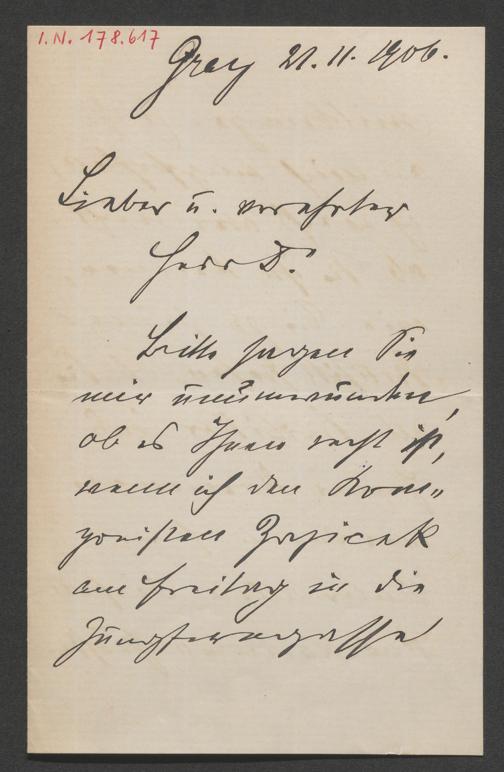 I.N. 178.617
Graz 21.11.1906.
Lieber u. verehrter
Herr Dr.
Bitte sagen Sie
mir unumwunden,
ob es Ihnen recht ist,
wenn ich den Kom-
ponisten Zepicak
am Freitag in die
Jungferngasse